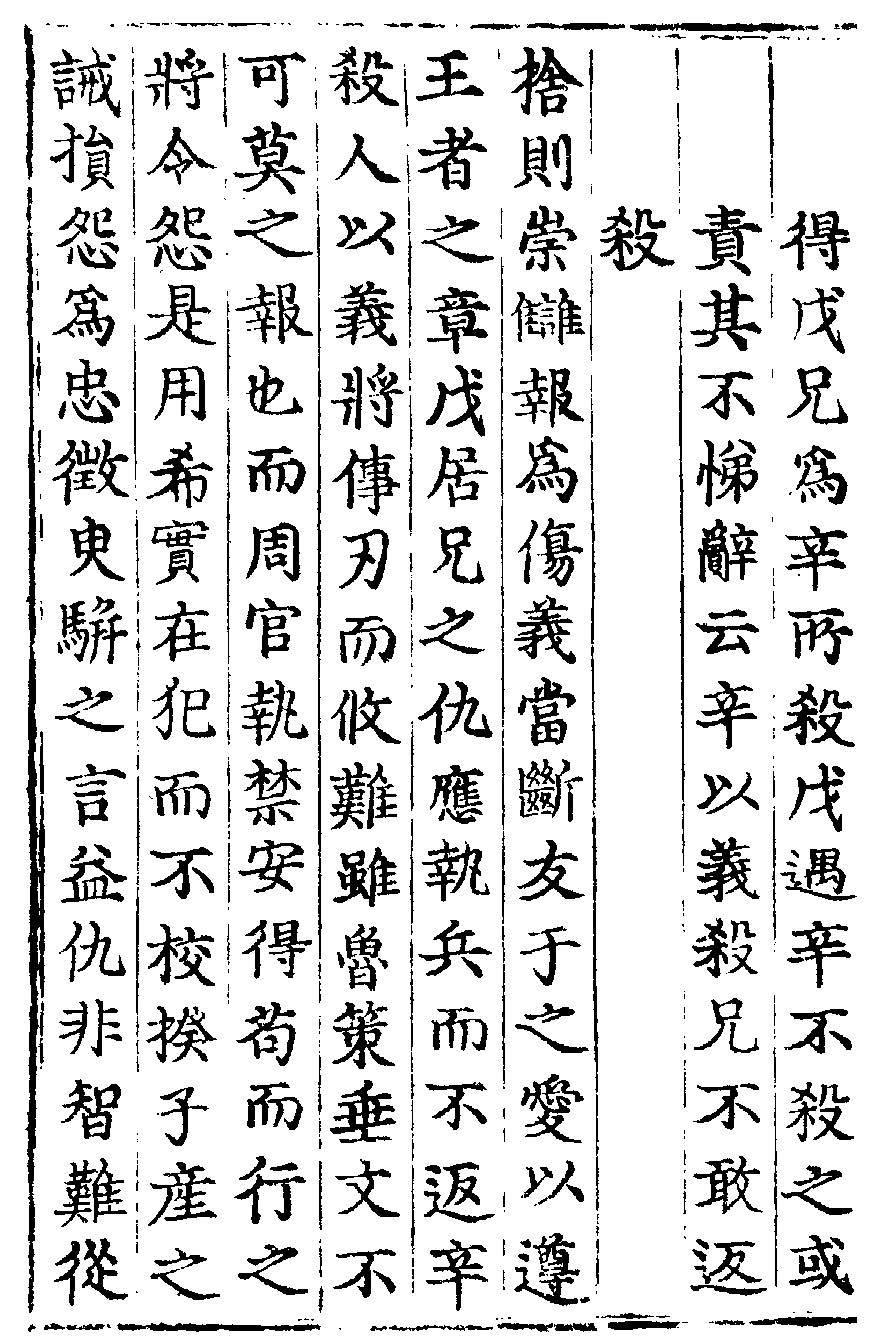 得戊兄為辛所殺戊遇辛不殺之或
責其不悌辭云辛以義殺兄不敢返
殺
捨則崇讎報為傷義當斷友于之愛以遵
王者之章戊居兄之仇應執兵而不返辛
殺人以義將倳刃而攸難雖魯策垂文不
可莫之報也而周官執禁安得苟而行之
將令怨是用希實在犯而不校揆子產之
誡損怨為忠徵臾駢之言益仇非智難從